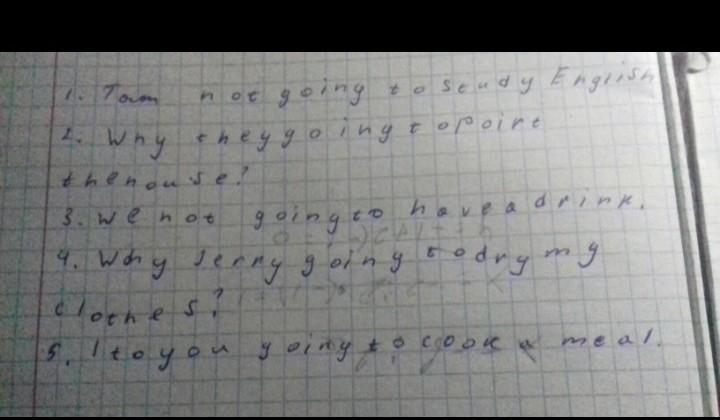 1. Tam not going to study English
2. Why they going to point
the house?
3. We not going to have a drink.
4. Why Jerry going to dry my
clothes?
5. I to you going to cook a meal.